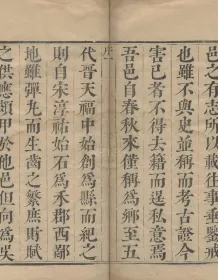 邑之有志所以載往事垂鑒戒
也雖不與史並稱而考古證今
害己者不得去籍而逞私意焉
吾邑自春秋來僅稱爲鄉至五
序
代晉天福中始創爲縣而紀之
則自宋淳祐始石爲禾郡西鄙
地雖彈丸而生齒之繁庶財賦
之供應類甲於他邑但向爲吳